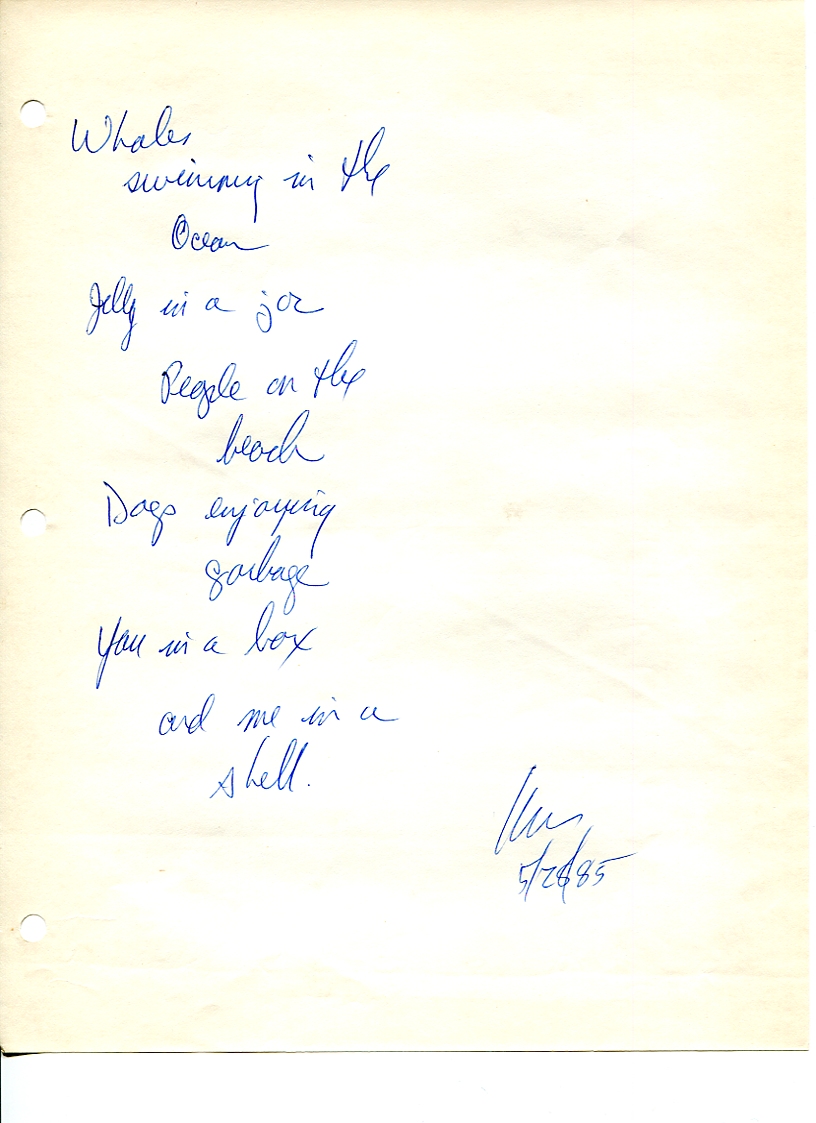 Whales
swimming in the
Ocean
Jelly in a jar
People on the
beach
Dogs enjoying
garbage
You in a box
and me in a
shell.
5/28/85